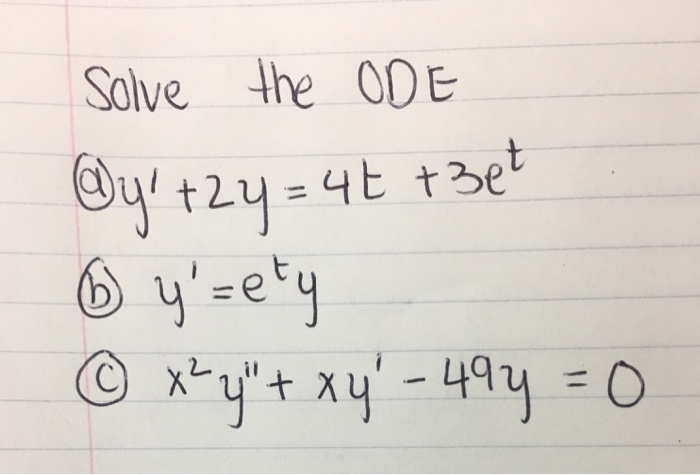 Solve the ODE
ⓐ y' + 2y = 4t + 3eᵗ
ⓑ y' = eᵗy
ⓒ x²y'' + xy' - 49y = 0